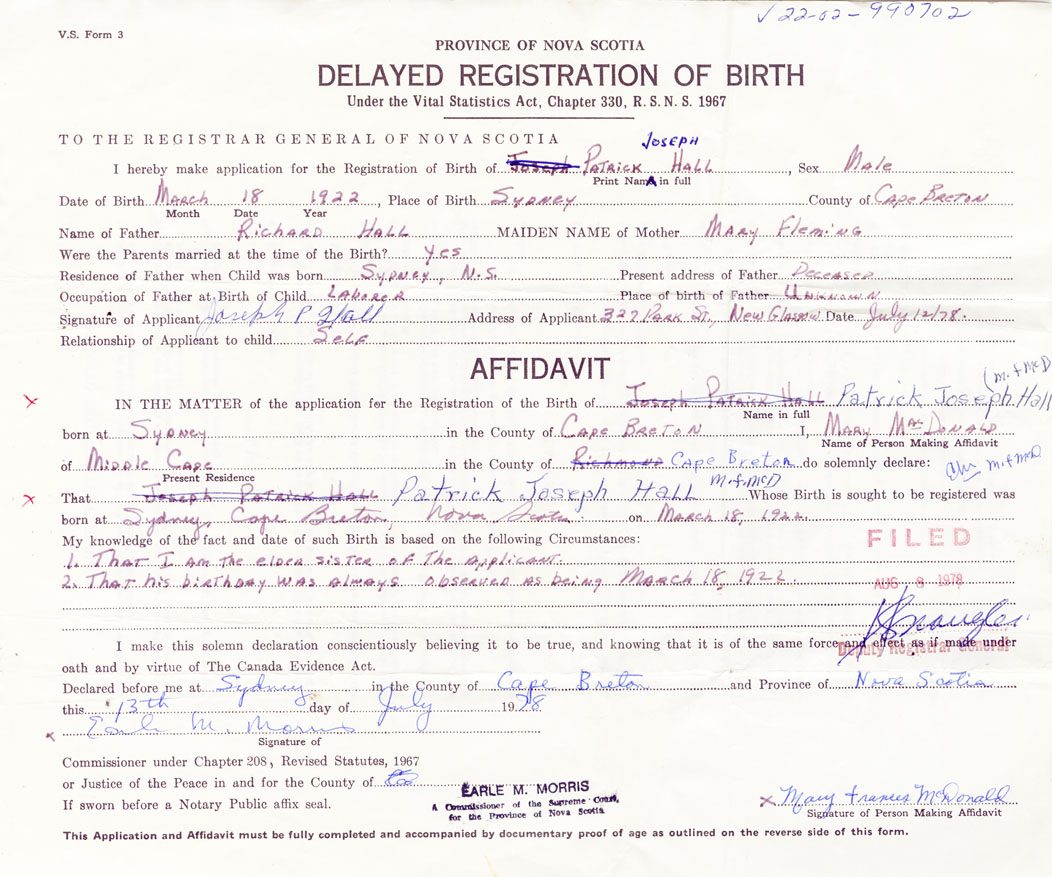 √ 22-02-990702
V.S. Form 3
PROVINCE OF NOVA SCOTIA
DELAYED REGISTRATION OF BIRTH
Under the Vital Statistics Act, Chapter 330, R.S.N.S. 1967
TO THE REGISTRAR GENERAL OF NOVA SCOTIA
JOSEPH
I hereby make application for the Registration of Birth of Joseph PATRICK HALL, Sex Male
Print Name in full
Date of Birth March 18 1922, Place of Birth SYDNEY County of CAPE BRETON
Month Date Year
Name of Father RICHARD HALL MAIDEN NAME of Mother MARY FLEMING
Were the Parents married at the time of the Birth? Yes
Residence of Father when Child was born SYDNEY, N.S. Present address of Father DECEASED
Occupation of Father at Birth of Child LABORER Place of birth of Father UNKNOWN
Signature of Applicant Joseph P Hall Address of Applicant 327 PARK ST., NEW GLASGOW Date July 12/78.
Relationship of Applicant to child SELF
AFFIDAVIT
m.f McD
IN THE MATTER of the application for the Registration of the Birth of Joseph Patrick Hall Patrick Joseph Hall
Name in full
born at SYDNEY in the County of CAPE BRETON I, MARY MacDONALD
Name of Person Making Affidavit
of MIDDLE CAPE in the County of Richmond Cape Breton do solemnly declare: m.f McD
Present Residence
That Joseph Patrick Hall Patrick Joseph Hall m.f McD Whose Birth is sought to be registered was
born at Sydney, Cape Breton, Nova Scotia on MARCH 18, 1922.
My knowledge of the fact and date of such Birth is based on the following Circumstances:
1. THAT I AM THE ELDER SISTER OF THE APPLICANT.
2. THAT his birthday WAS ALWAYS OBSERVED AS BEING MARCH 18, 1922.
FILED
AUG 8 1978
I make this solemn declaration conscientiously believing it to be true, and knowing that it is of the same force and effect as if made under
Deputy Registrar General
oath and by virtue of The Canada Evidence Act.
Declared before me at Sydney in the County of Cape Breton and Province of Nova Scotia
this 13th day of July 1978
Earle M. Morris
Signature of
Commissioner under Chapter 208, Revised Statutes, 1967
or Justice of the Peace in and for the County of
If sworn before a Notary Public affix seal.
EARLE M. MORRIS
A Commissioner of the Supreme Court,
for the Province of Nova Scotia
Mary Frances McDonald
Signature of Person Making Affidavit
This Application and Affidavit must be fully completed and accompanied by documentary proof of age as outlined on the reverse side of this form.